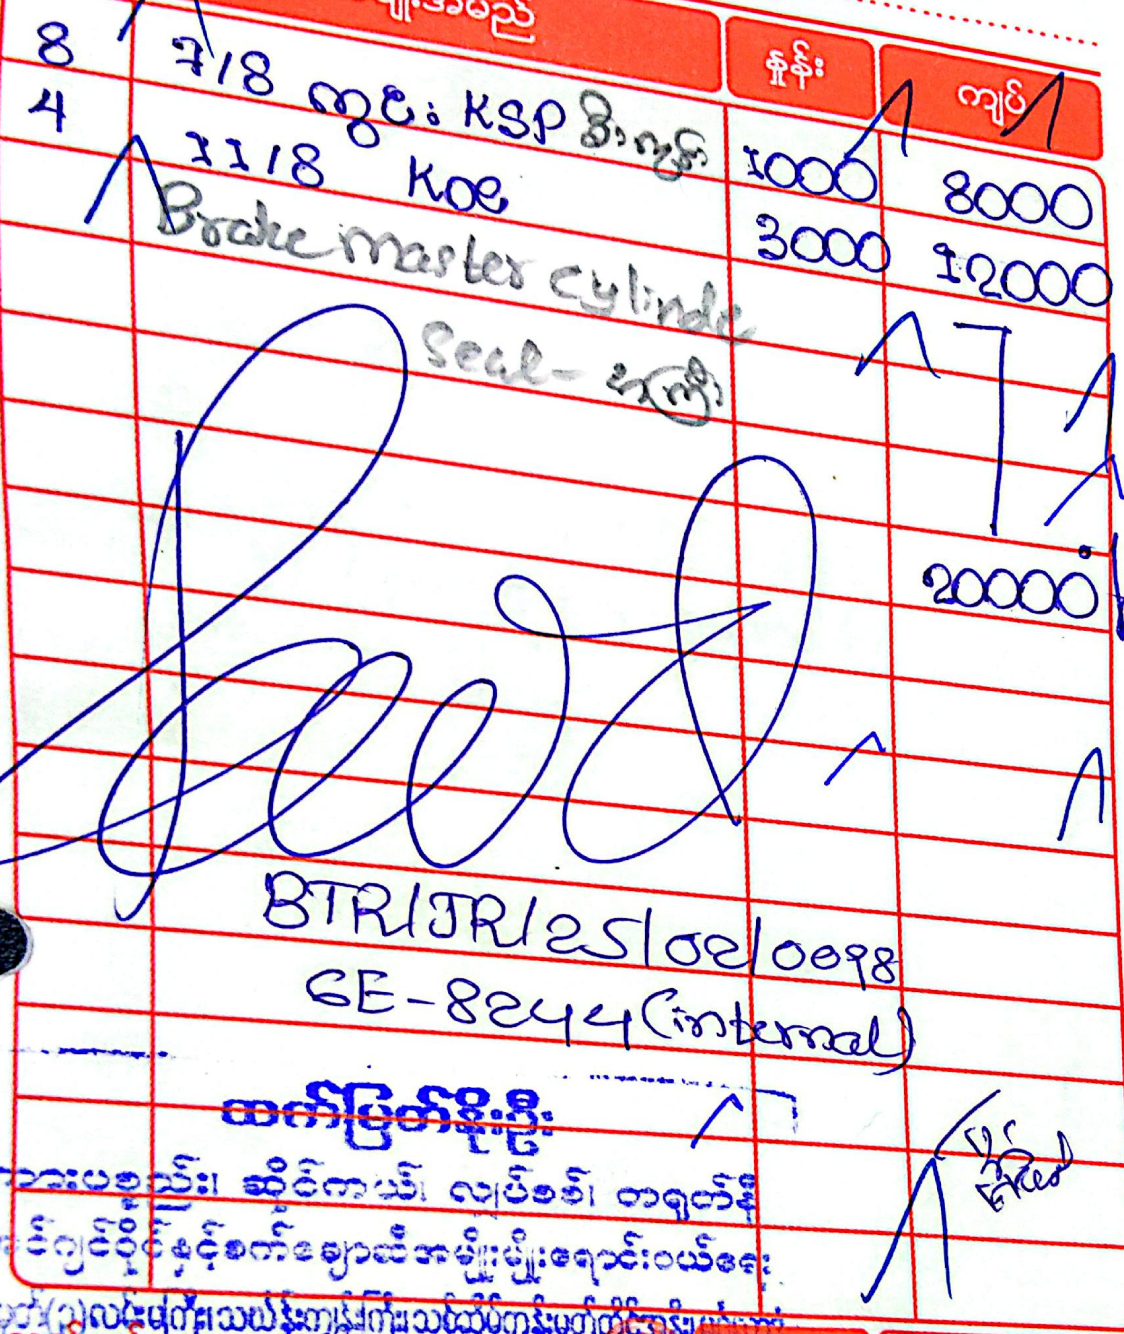 နှုန်း ကျပ်
8 7/8 ကွင်း KSP 1000 8000
4 11/8 KOE 3000 12000
Brake master cylinde
Seal- အကြီး
20000
BTR/JR/25/02/0098
6E-8244 (internal)
ထက်မြတ်စိုးဦး
ကားပစ္စည်း၊ ဆိုင်ကယ်၊ လျှပ်စစ်၊ တရုတ်နီ
အင်ဂျင်ဝိုင်နှင့်စက်ချောဆီအမျိုးမျိုးရောင်းဝယ်ရေး